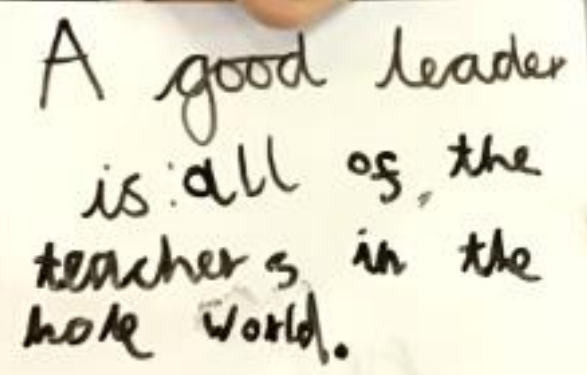 A good leader
is: all of the
teachers in the
hole world.